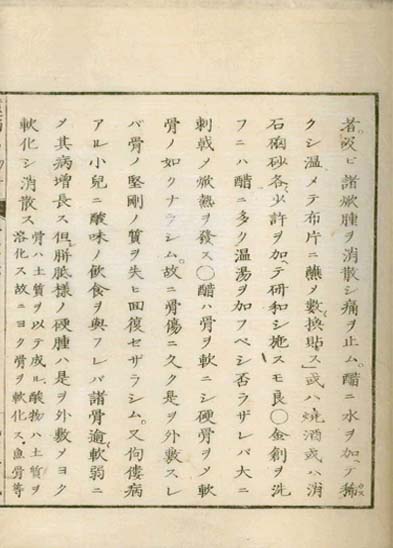 者及ビ諸焮腫ヲ消散シ痛ヲ止ム。醋ニ水ヲ加ヘテ稀
クシ温メテ布片ニ蘸メ數換貼ス」或ハ焼酒或ハ消
石硇砂各少許ヲ加ヘテ研和シ施スモ良〇金創ヲ洗
フニハ醋ニ多ク温湯ヲ加フベシ否ラザレバ大ニ
刺戟メ焮熱ヲ發ス〇醋ハ骨ヲ軟ニシ硬骨ヲメ軟
骨ノ如クナラシム。故ニ骨傷ニ久ク是ヲ外敷スレ
バ骨ノ堅剛ノ質ヲ失ヒ回復セザラシム。又佝僂病
アル小兒ニ酸味ノ飲食ヲ與フレバ諸骨逾軟弱ニ
メ其病増長ス但胼胝樣ノ硬腫ハ是ヲ外敷メヨク
軟化シ消散ス
骨ハ土質ヲ以テ成ル、酸物ハ土質ヲ
溶化ス故ニヨク骨ヲ軟化ス、魚骨等